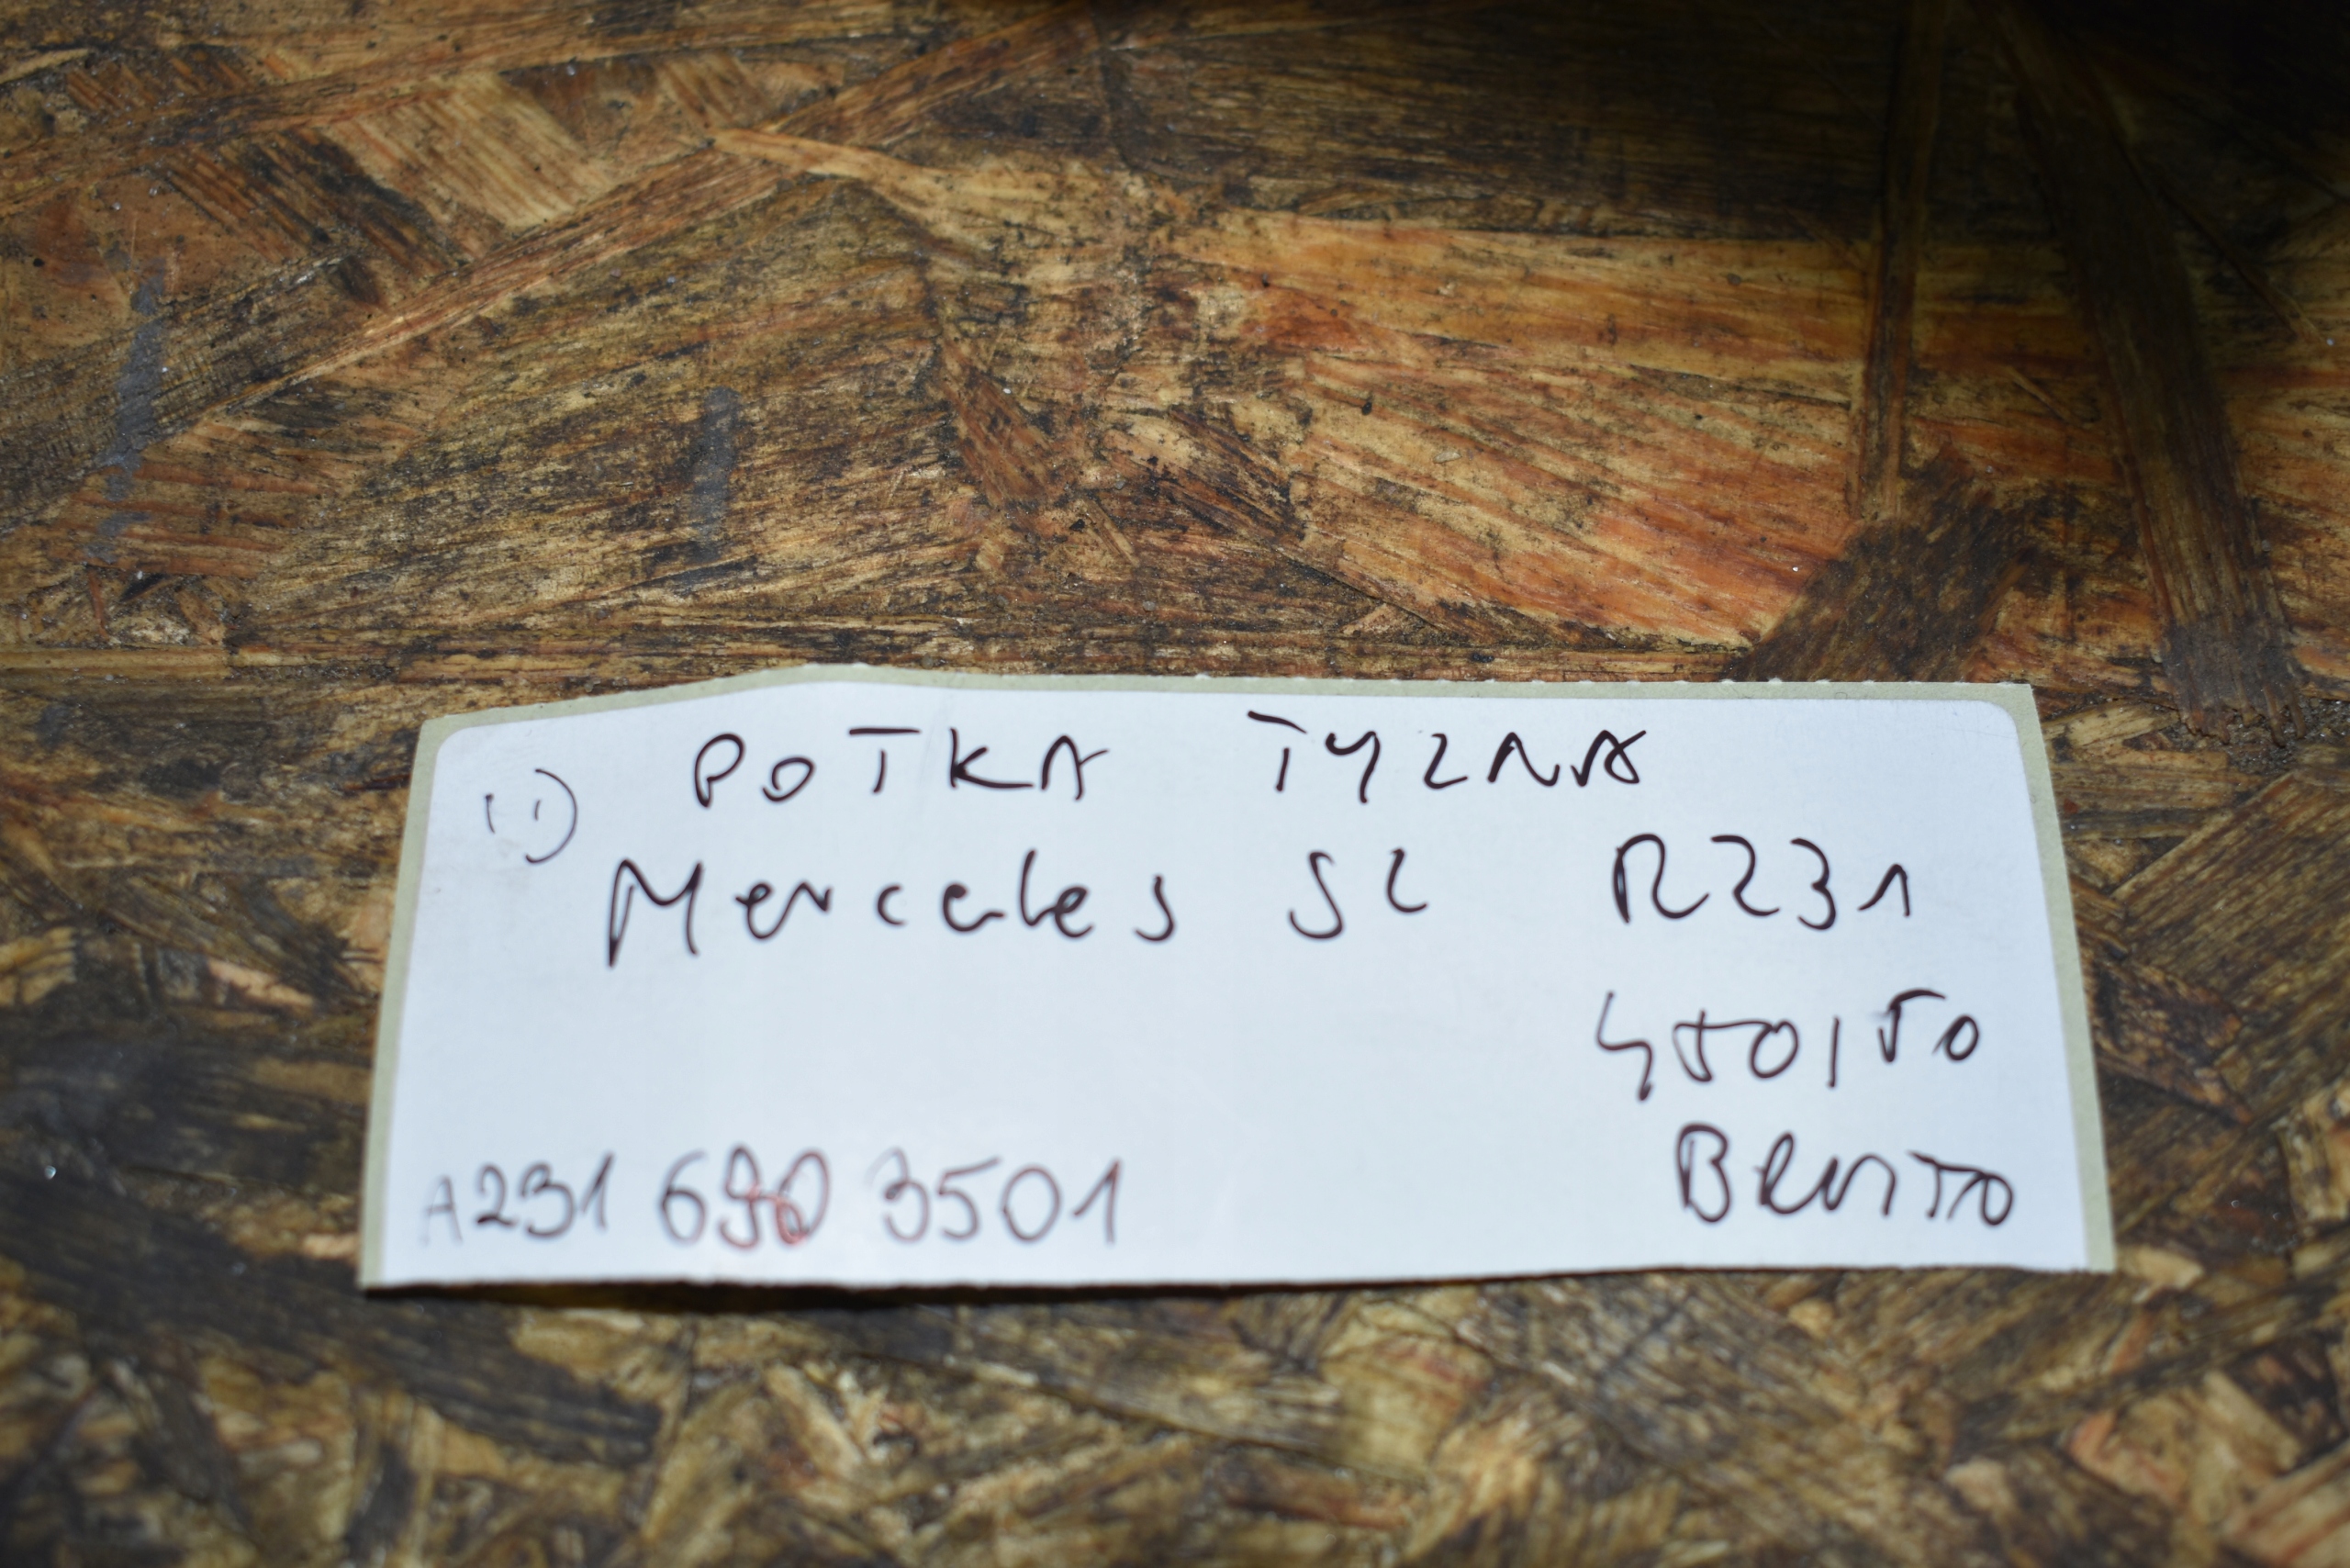 POTKA TYLNA
Mercedes SL R231
450,50
BRUTTO
A231 690 3501